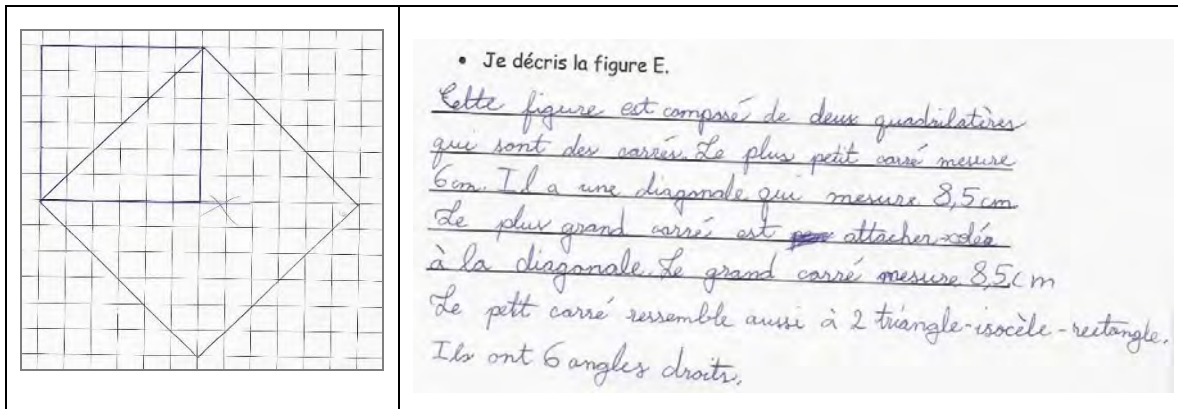 • Je décris la figure E.
Cette figure est composé de deux quadrilatères
qui sont des carrés. Le plus petit carré mesure
6cm. Il a une diagonale qui mesure 8,5cm
Le plus grand carré est attacher
à la diagonale. Le grand carré mesure 8,5cm
Le petit carré ressemble aussi à 2 triangle-isocèle-rectangle.
Ils ont 6 angles droits.